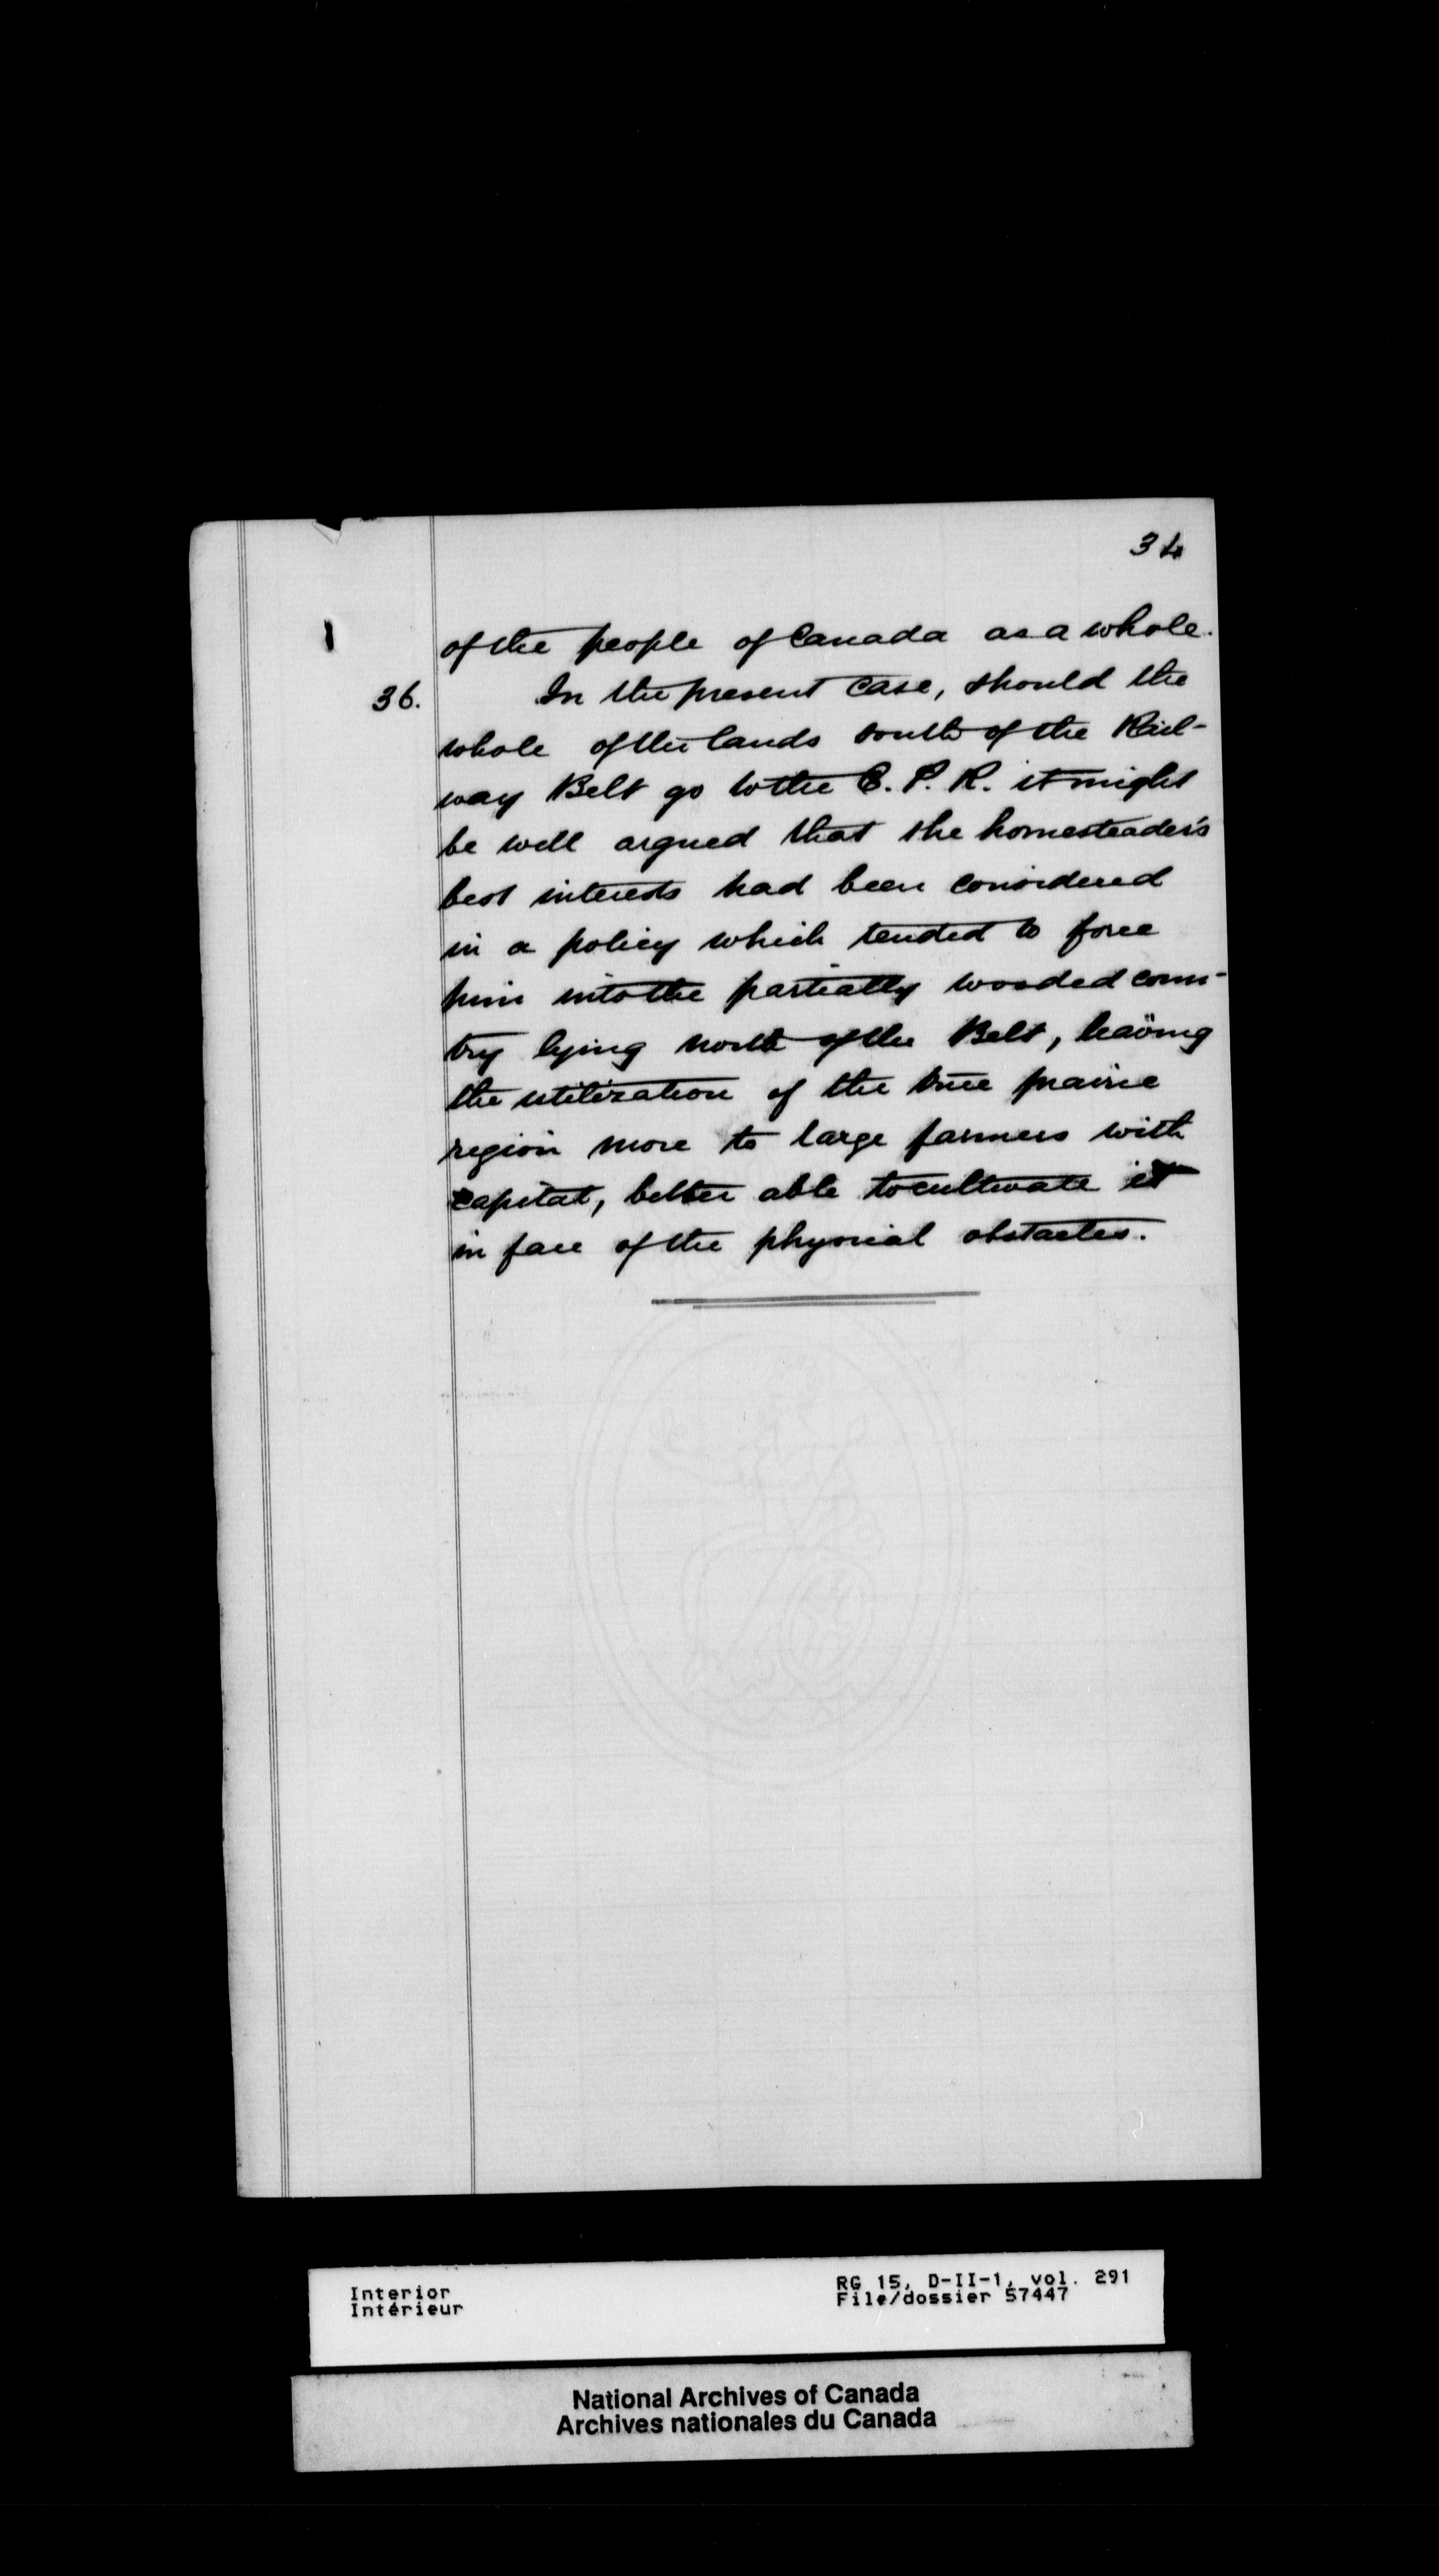 34
of the people of Canada as a whole.
36. In the present case, should the
whole of the lands south of the Rail-
way Belt go to the C. P. R. it might
be well argued that the homesteader's
best interests had been considered
in a policy which tended to force
him into the partially wooded coun-
try lying north of the Belt, leaving
the utilization of the true prairie
region more to large farmers with
capital, better able to cultivate it
in face of the physical obstacles.
Interior
Intérieur
RG 15, D-II-1, vol. 291
File/dossier 57447
National Archives of Canada
Archives nationales du Canada